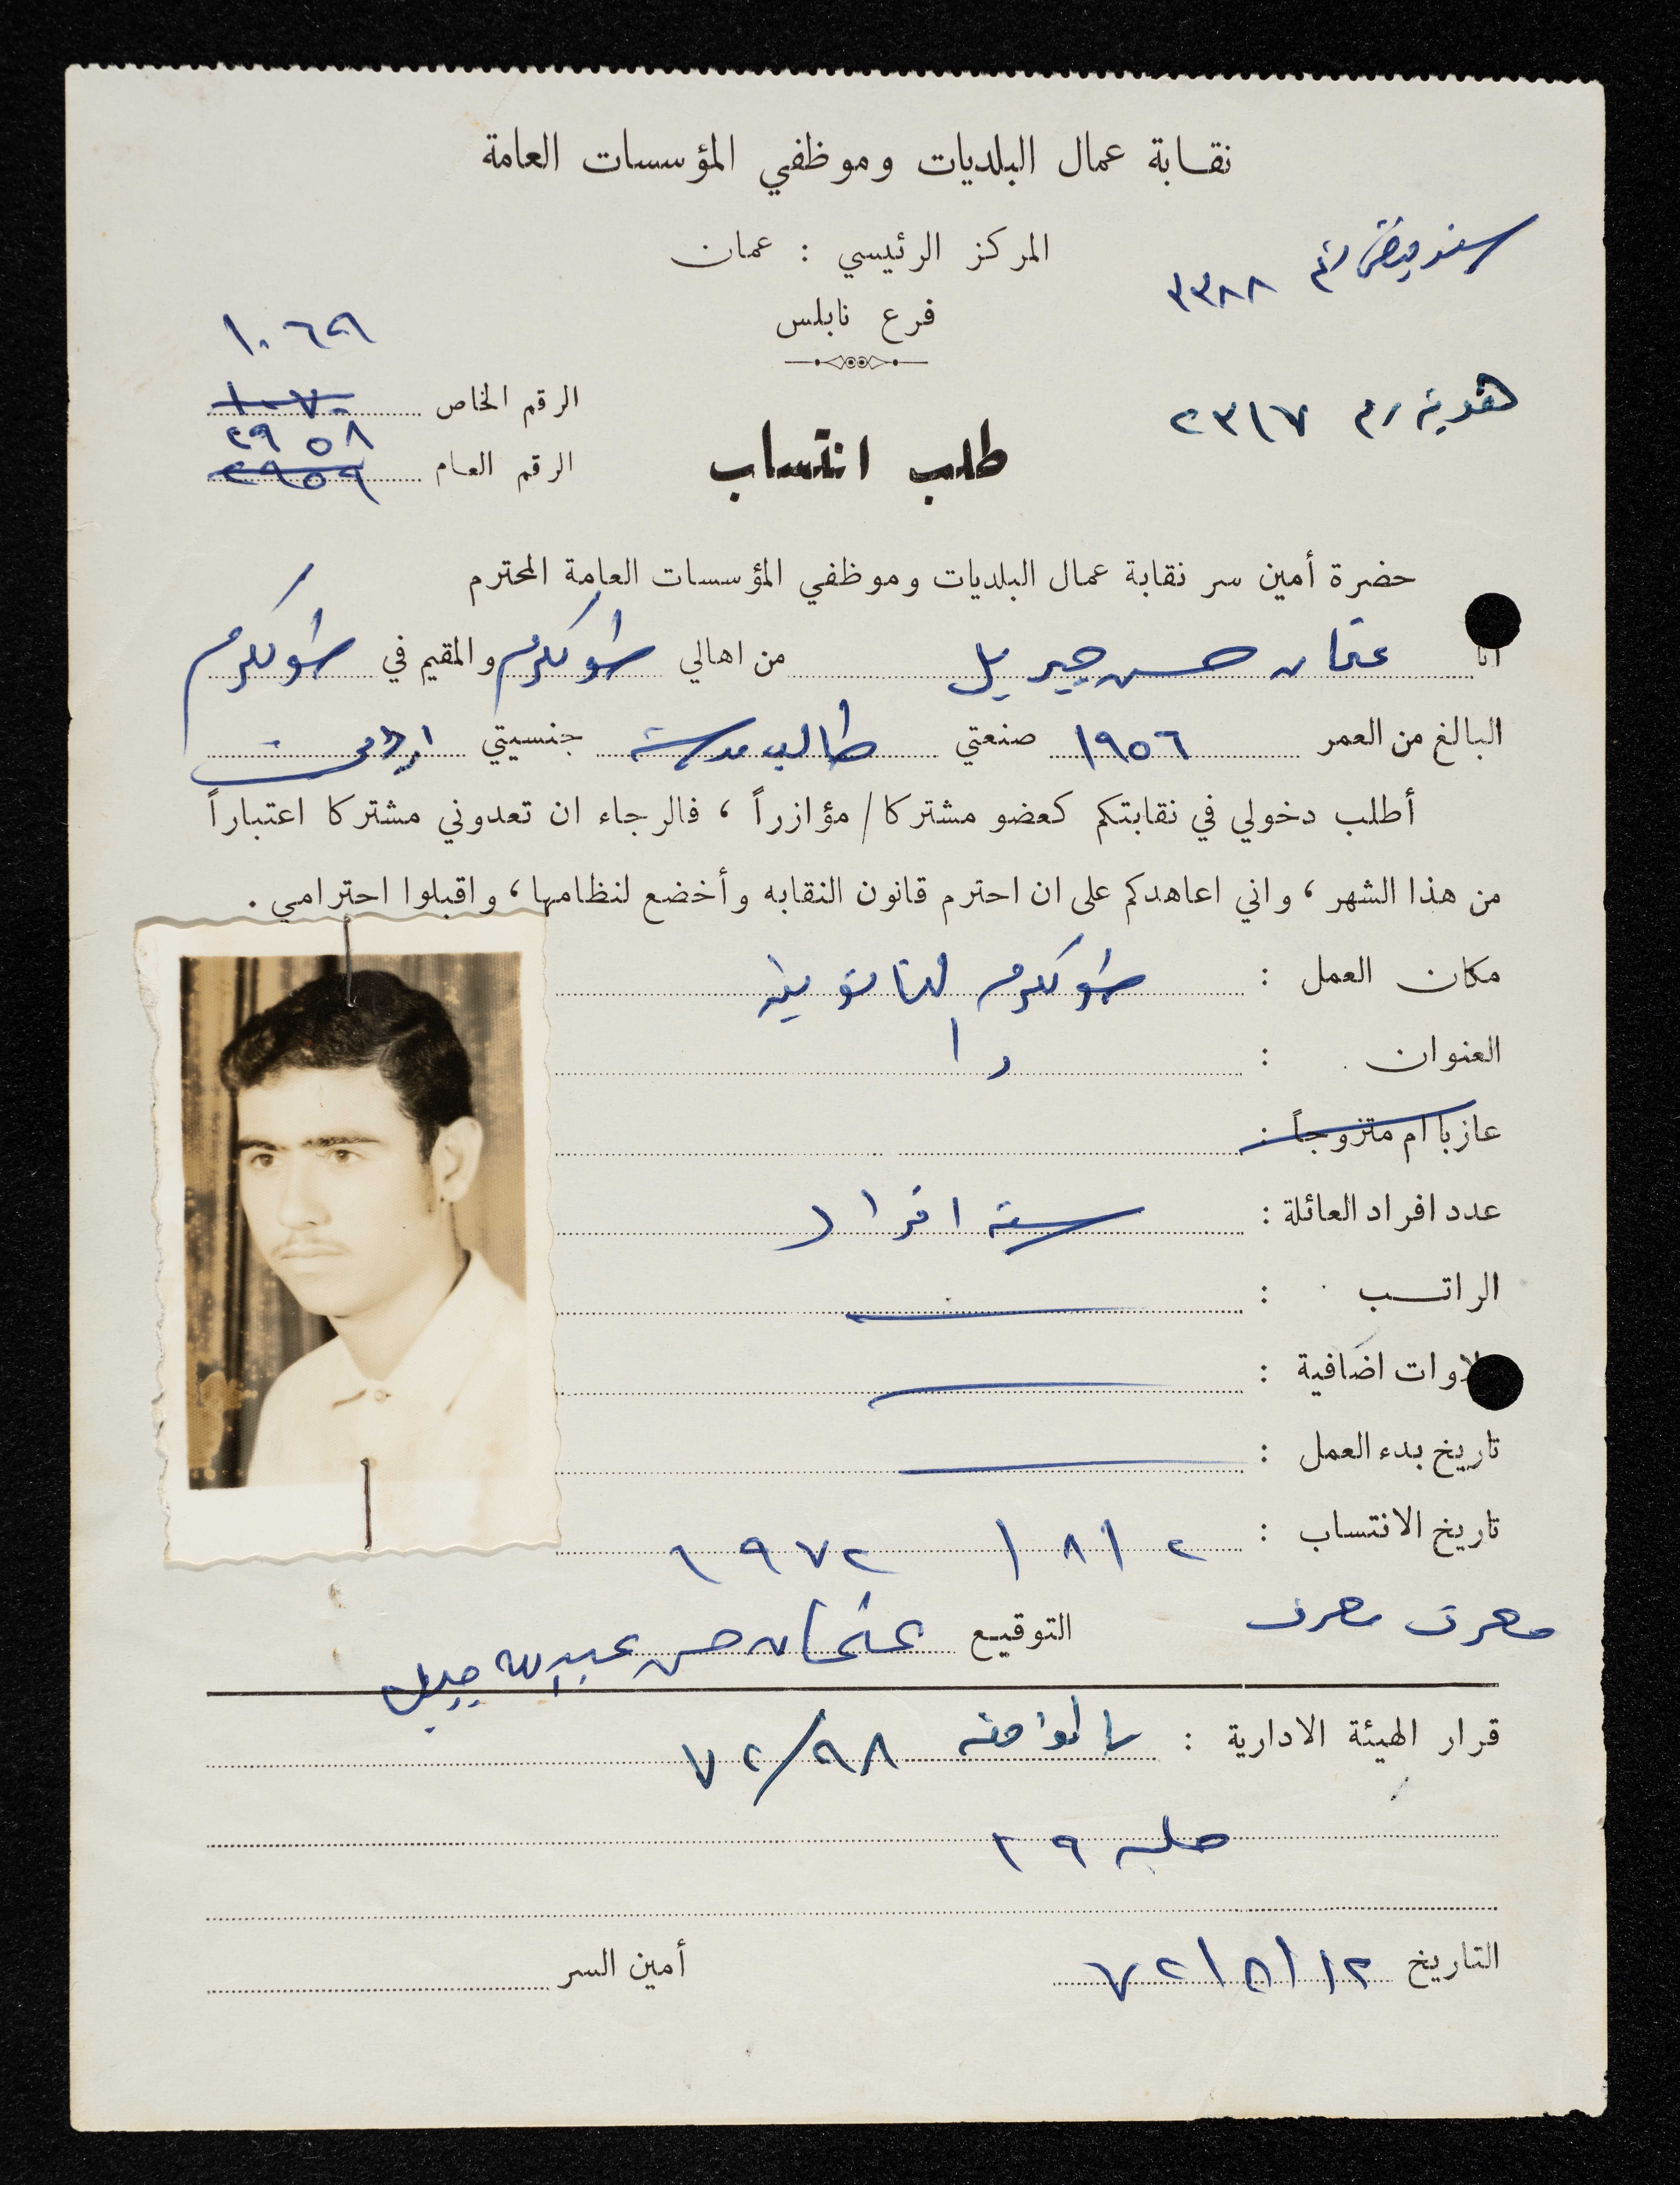 نقابة عمال البلديات وموظفي المؤسسات العامة
المركز الرئيسي : عمان
فرع نابلس
سند قبض رقم ٣٣٨٨
هوية رقم ٢٣١٧
١٠٦٩
الرقم الخاص ١٠٧٠
٢٩٥٨
الرقم العام ٢٩٥٩
طلب انتساب
حضرة أمين سر نقابة عمال البلديات وموظفي المؤسسات العامة المحترم
انا عثمان حسن جبريل من اهالي طولكرم والمقيم في طولكرم
البالغ من العمر ١٩٥٦ صنعتي طالب مدرسة جنسيتي اردني
أطلب دخولي في نقابتكم كعضو مشتركا / مؤازراً ، فالرجاء ان تعدوني مشتركا اعتباراً
من هذا الشهر ، واني اعاهدكم على ان احترم قانون النقابه وأخضع لنظامها ، واقبلوا احترامي .
مكان العمل : طولكرم الثانوية
العنوان :
عازبا ام متزوجاً :
عدد افراد العائلة : ستة افراد
الراتب :
لاوات اضافية :
تاريخ بدء العمل :
تاريخ الانتساب : ٢ / ٨ / ١٩٧٢
التوقيع عثمان حسن عبدالله جبريل
قرار الهيئة الادارية : بالموافقه ٩٨/٧٢
جلسه ٢٩
التاريخ ١٢/٨/٧٢
أمين السر